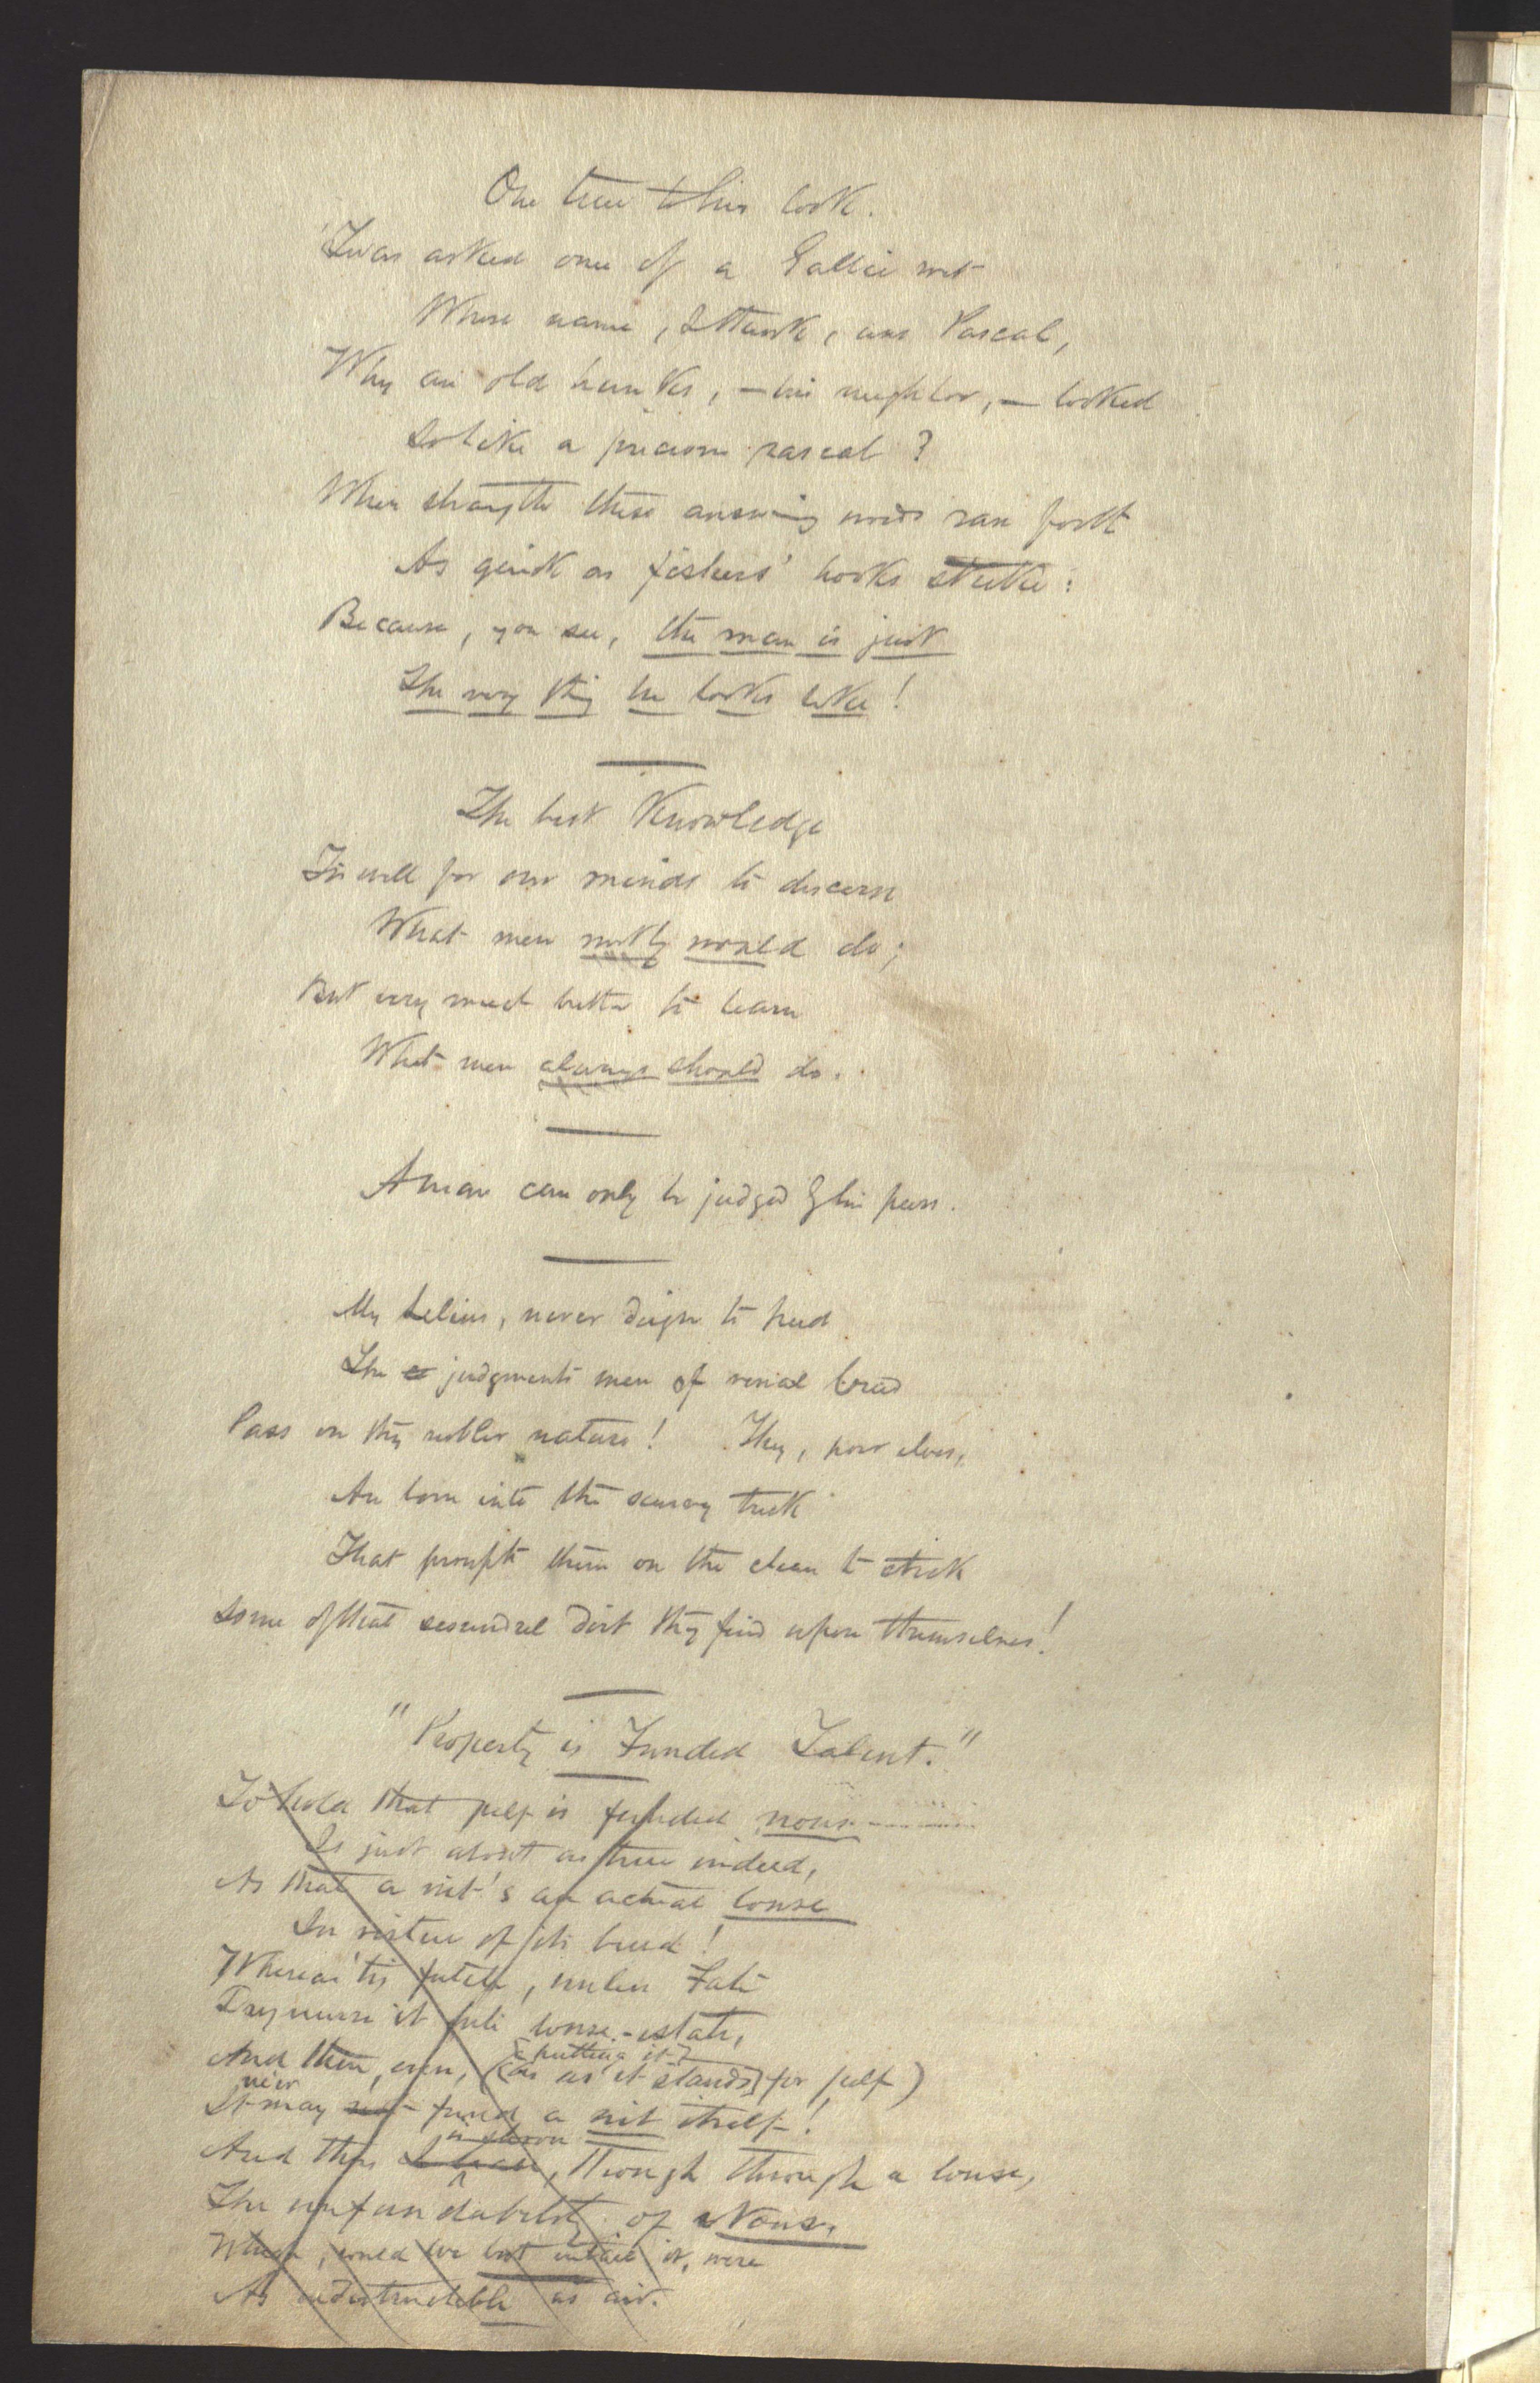 One true to his look.
'Twas asked once of a Gallic wit
Whose name, I think, was Pascal,
Why an old hunks, – his neighbor, – looked
So like a precious rascal?
When straight these answering words ran forth
As quick as fishers' hooks strike:
Because, you see, the man is just
The very thing he looks like!
The best Knowledge
'Tis well for our minds to discern
What men mostly would do;
But very much better to learn
What men always should do.
A man can only be judged by his peers.
My Lelius, never deign to heed
The judgments men of venial breed
Pass on thy nobler nature! They, poor elves,
Are born into the scurvy trick
That prompts them on the clean to stick
Some of that scoundrel dirt they find upon themselves!
"Property is Funded Talent."
To hold that pelf is funded nous
Is just about as true indeed,
As that a nit's an actual louse
In virtue of its breed!
Whereas 'tis futile, unless Fate
Dry nurse it into louse-estate,
And then, even, (as putting it as it stands for pelf)
It may ne'er fund a nit itself!
And thus is shown, though through a louse,
The unfundability of Nous,
Which, could we but it, were
As indestructible as air.